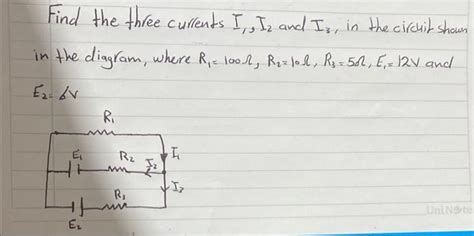 Find the three currents I₁, I₂ and I₃, in the circuit shown
in the diagram, where R₁=100Ω, R₂=10Ω, R₃=5Ω, E₁=12V and
E₂=6V
R₁
E₁ R₂ I₂ I₁
I₃
R₃
E₂
UniNote